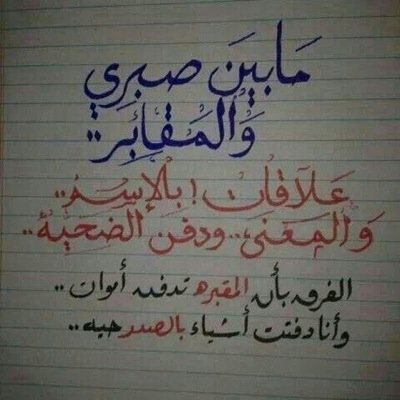 مَا بَيَن صبري
وَالمَقَابِر..
عَلاَقَات! بالإسم..
وَالمِعَنىَ.. ودفن الضَحِيَة..
الفرق بأن المقبره تدفن أموات..
وأنا دفنت أشياء بالصدر حيه..